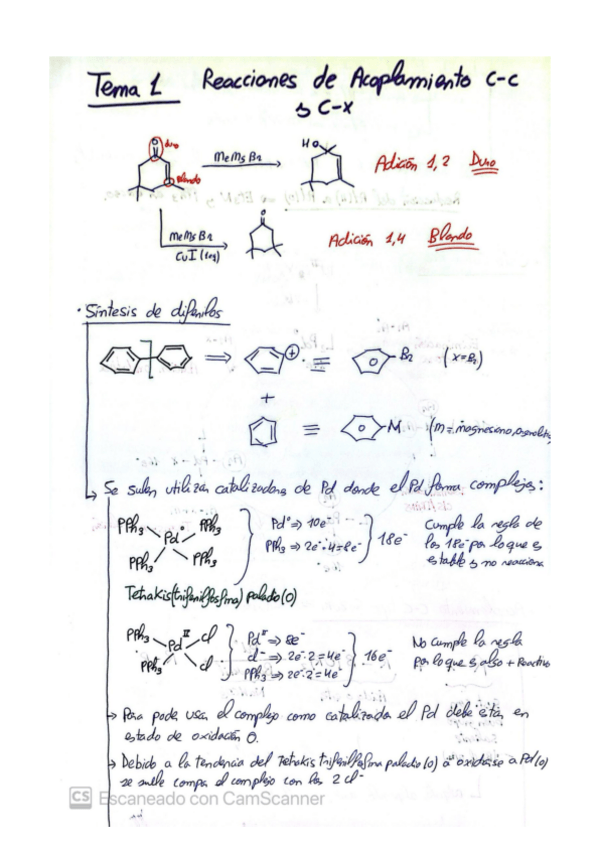 Tema 1 Reacciones de Acoplamiento C-C
y C-X
duro
blando
MeMgBr
HO
Adición 1,2 Duro
O
MeMgBr
CuI (leg)
Adición 1,4 Blando
· Síntesis de difenilos
⇒ + ≡ -Br (x=Br)
+
≡ -M (M = magnesiano,
Se suelen utilizar catalizadores de Pd donde el Pd forma complejos:
PPh3 PPh3 Pd° ⇒ 10e- Cumple la regla de
Pd PPh3 ⇒ 2e-·4=8e- 18e- los 18e- por lo que es
PPh3 PPh3 estable y no reacciona
Tetrakis(trifenilfosfina) paladio(0)
PPh3 Cl Pd II ⇒ 8e- No cumple la regla
Pd II Cl- ⇒ 2e-·2=4e- 16e- por lo que es algo + Reactivo
PPh3 Cl PPh3 ⇒ 2e-·2=4e-
→ Para poder usar el complejo como catalizador el Pd debe estar en
estado de oxidación 0.
→ Debido a la tendencia del Tetrakis trifenilfosfina paladio(0) a oxidarse a Pd(0)
se suele comprar el complejo con los 2 Cl-
CS Escaneado con CamScanner